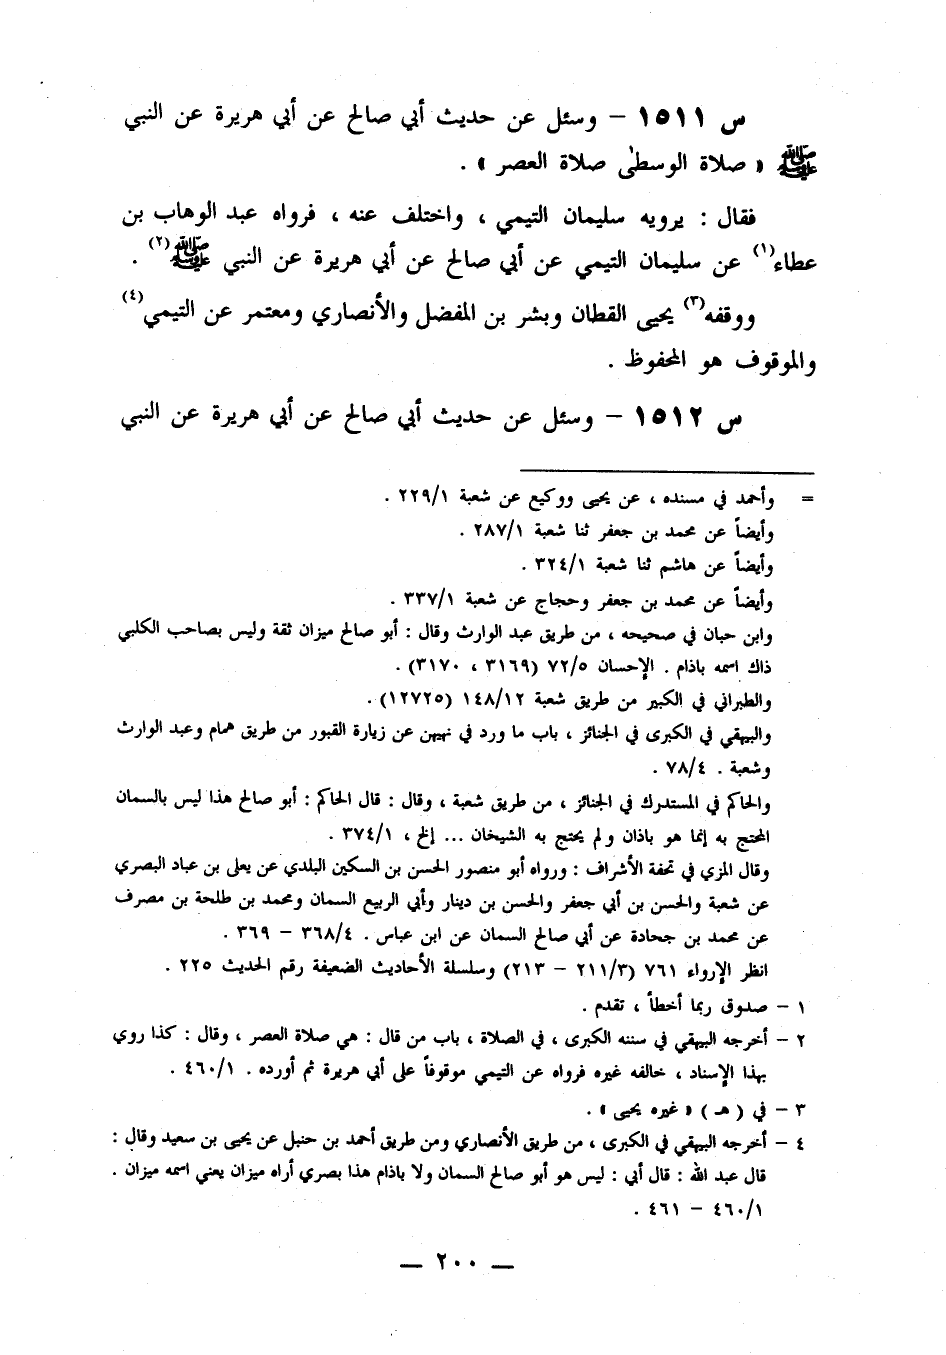 س ١٥١١ – وسئل عن حديث أبي صالح عن أبي هريرة عن النبي
ﷺ « صلاة الوسطىٰ صلاة العصر » .
فقال : يرويه سليمان التيمي ، واختلف عنه ، فرواه عبد الوهاب بن
عطاء(١) عن سليمان التيمي عن أبي صالح عن أبي هريرة عن النبي ﷺ(٢) .
ووقفه(٣) يحيى القطان وبشر بن المفضل والأنصاري ومعتمر عن التيمي(٤)
والموقوف هو المحفوظ .
س ١٥١٢ – وسئل عن حديث أبي صالح عن أبي هريرة عن النبي
= وأحمد في مسنده ، عن يحيى ووكيع عن شعبة ٢٢٩/١ .
وأيضاً عن محمد بن جعفر ثنا شعبة ٢٨٧/١ .
وأيضاً عن هاشم ثنا شعبة ٣٢٤/١ .
وأيضاً عن محمد بن جعفر وحجاج عن شعبة ٣٣٧/١ .
وابن حبان في صحيحه ، من طريق عبد الوارث وقال : أبو صالح ميزان ثقة وليس بصاحب الكلبي
ذاك اسمه باذام . الإحسان ٧٢/٥ (٣١٦٩ ، ٣١٧٠) .
والطبراني في الكبير من طريق شعبة ١٤٨/١٢ (١٢٧٢٥) .
والبيهقي في الكبرى في الجنائز ، باب ما ورد في نهيهن عن زيارة القبور من طريق همام وعبد الوارث
وشعبة . ٧٨/٤ .
والحاكم في المستدرك في الجنائز ، من طريق شعبة ، وقال : قال الحاكم : أبو صالح هذا ليس بالسمان
المحتج به إنما هو باذان ولم يحتج به الشيخان ... إلخ ، ٣٧٤/١ .
وقال المزي في تحفة الأشراف : ورواه أبو منصور الحسن بن السكين البلدي عن يعلى بن عباد البصري
عن شعبة والحسن بن أبي جعفر والحسن بن دينار وأبي الربيع السمان ومحمد بن طلحة بن مصرف
عن محمد بن جحادة عن أبي صالح السمان عن ابن عباس . ٣٦٨/٤ – ٣٦٩ .
انظر الإرواء ٧٦١ (٢١١/٣ – ٢١٣) وسلسلة الأحاديث الضعيفة رقم الحديث ٢٢٥ .
١ – صدوق ربما أخطأ ، تقدم .
٢ – أخرجه البيهقي في سننه الكبرى ، في الصلاة ، باب من قال : هي صلاة العصر ، وقال : كذا روي
بهذا الإسناد ، خالفه غيره فرواه عن التيمي موقوفاً على أبي هريرة ثم أورده . ٤٦٠/١ .
٣ – في ( هـ ) « غيره يحيى » .
٤ – أخرجه البيهقي في الكبرى ، من طريق الأنصاري ومن طريق أحمد بن حنبل عن يحيى بن سعيد وقال :
قال عبد الله : قال أبي : ليس هو أبو صالح السمان ولا باذام هذا بصري أراه ميزان يعني اسمه ميزان .
٤٦٠/١ – ٤٦١ .
— ٢٠٠ —